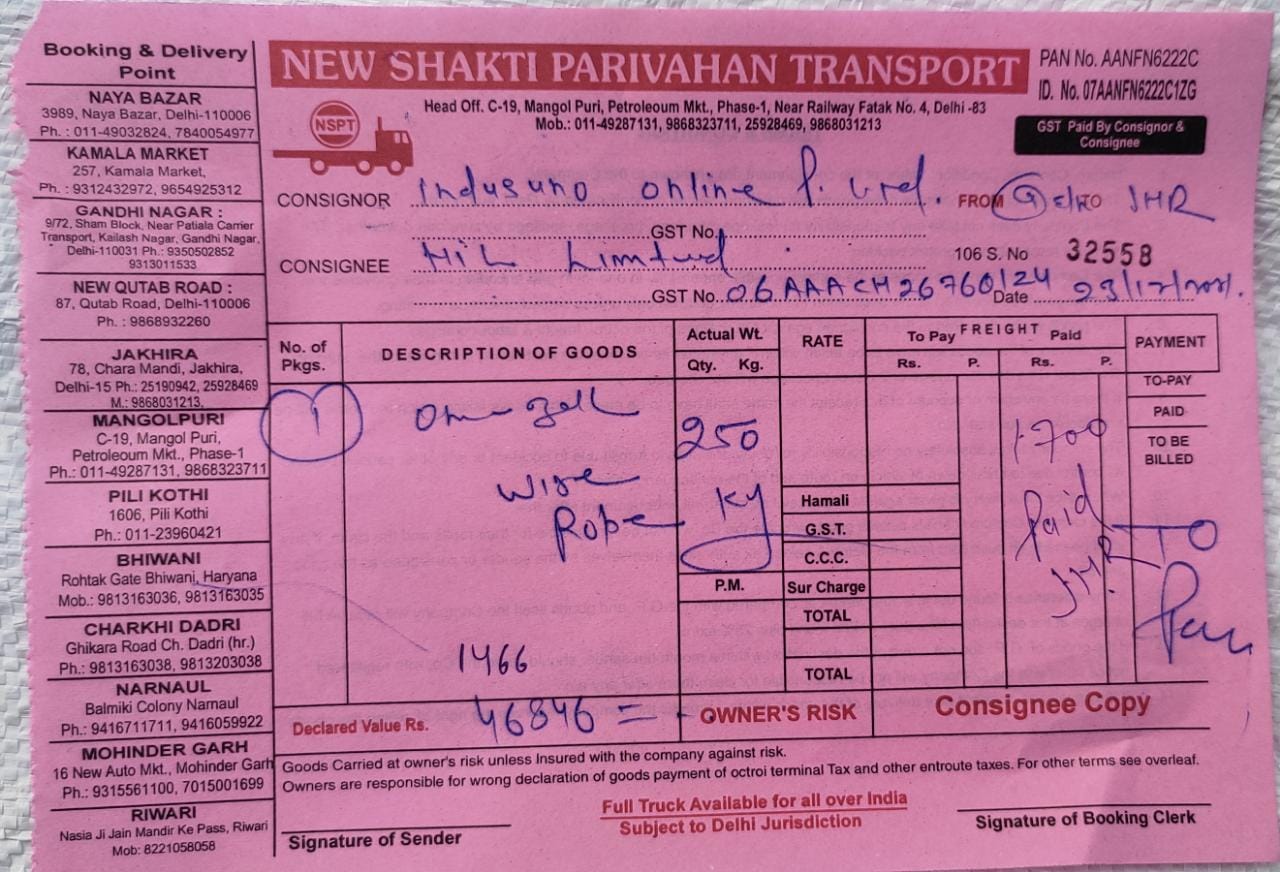 Booking & Delivery
Point
NAYA BAZAR
3989, Naya Bazar, Delhi-110006
Ph. : 011-49032824, 7840054977
KAMALA MARKET
257, Kamala Market,
Ph. : 9312432972, 9654925312
GANDHI NAGAR :
9/72, Sham Block, Near Patiala Carrier
Transport, Kailash Nagar, Gandhi Nagar,
Delhi-110031 Ph. :9350502852
9313011533
NEW QUTAB ROAD :
87, Qutab Road, Delhi-110006
Ph. : 9868932260
JAKHIRA
78, Chara Mandi, Jakhira,
Delhi-15 Ph.: 25190942, 25928469
M.: 9868031213,
MANGOLPURI
C-19, Mangol Puri,
Petroleum Mkt., Phase-1
Ph.: 011-49287131, 9868323711
PILI KOTHI
1606, Pili Kothi
Ph.: 011-23960421
BHIWANI
Rohtak Gate Bhiwani, Haryana
Mob.: 9813163036, 9813163035
CHARKHI DADRI
Ghikara Road Ch. Dadri (hr.)
Ph.: 9813163038, 9813203038
NARNAUL
Balmiki Colony Narnaul
Ph.: 9416711711, 9416059922
MOHINDER GARH
16 New Auto Mkt., Mohinder Garh
Ph.: 9315561100, 7015001699
RIWARI
Nasia Ji Jain Mandir Ke Pass, Riwari
Mob: 8221058058
NEW SHAKTI PARIVAHAN TRANSPORT
PAN No. AANFN6222C
ID. No. 07AANFN6222C1ZG
NSPT
Head Off. C-19, Mangol Puri, Petroleoum Mkt., Phase-1, Near Railway Fatak No. 4, Delhi -83
Mob.: 011-49287131, 9868323711, 25928469, 9868031213
GST Paid By Consignor &
Consignee
CONSIGNOR Indusuno online P. FROM TO JHR
GST No.
CONSIGNEE HiL 106 S. No 32558
GST No. 06AAACH2676 Date 23/12/
No. of
Pkgs.
DESCRIPTION OF GOODS
Actual Wt.
Qty. Kg.
RATE
FREIGHT
To Pay Paid
Rs. P. Rs. P.
PAYMENT
TO-PAY
PAID
TO BE
BILLED
1 250 1700
Wire
Rope Kg Paid
JHR TO
Hamali
G.S.T.
C.C.C.
P.M. Sur Charge
TOTAL
TOTAL
1466
Declared Value Rs. 46846 = OWNER'S RISK Consignee Copy
Goods Carried at owner's risk unless Insured with the company against risk.
Owners are responsible for wrong declaration of goods payment of octroi terminal Tax and other entroute taxes. For other terms see overleaf.
Full Truck Available for all over India
Subject to Delhi Jurisdiction
Signature of Sender
Signature of Booking Clerk